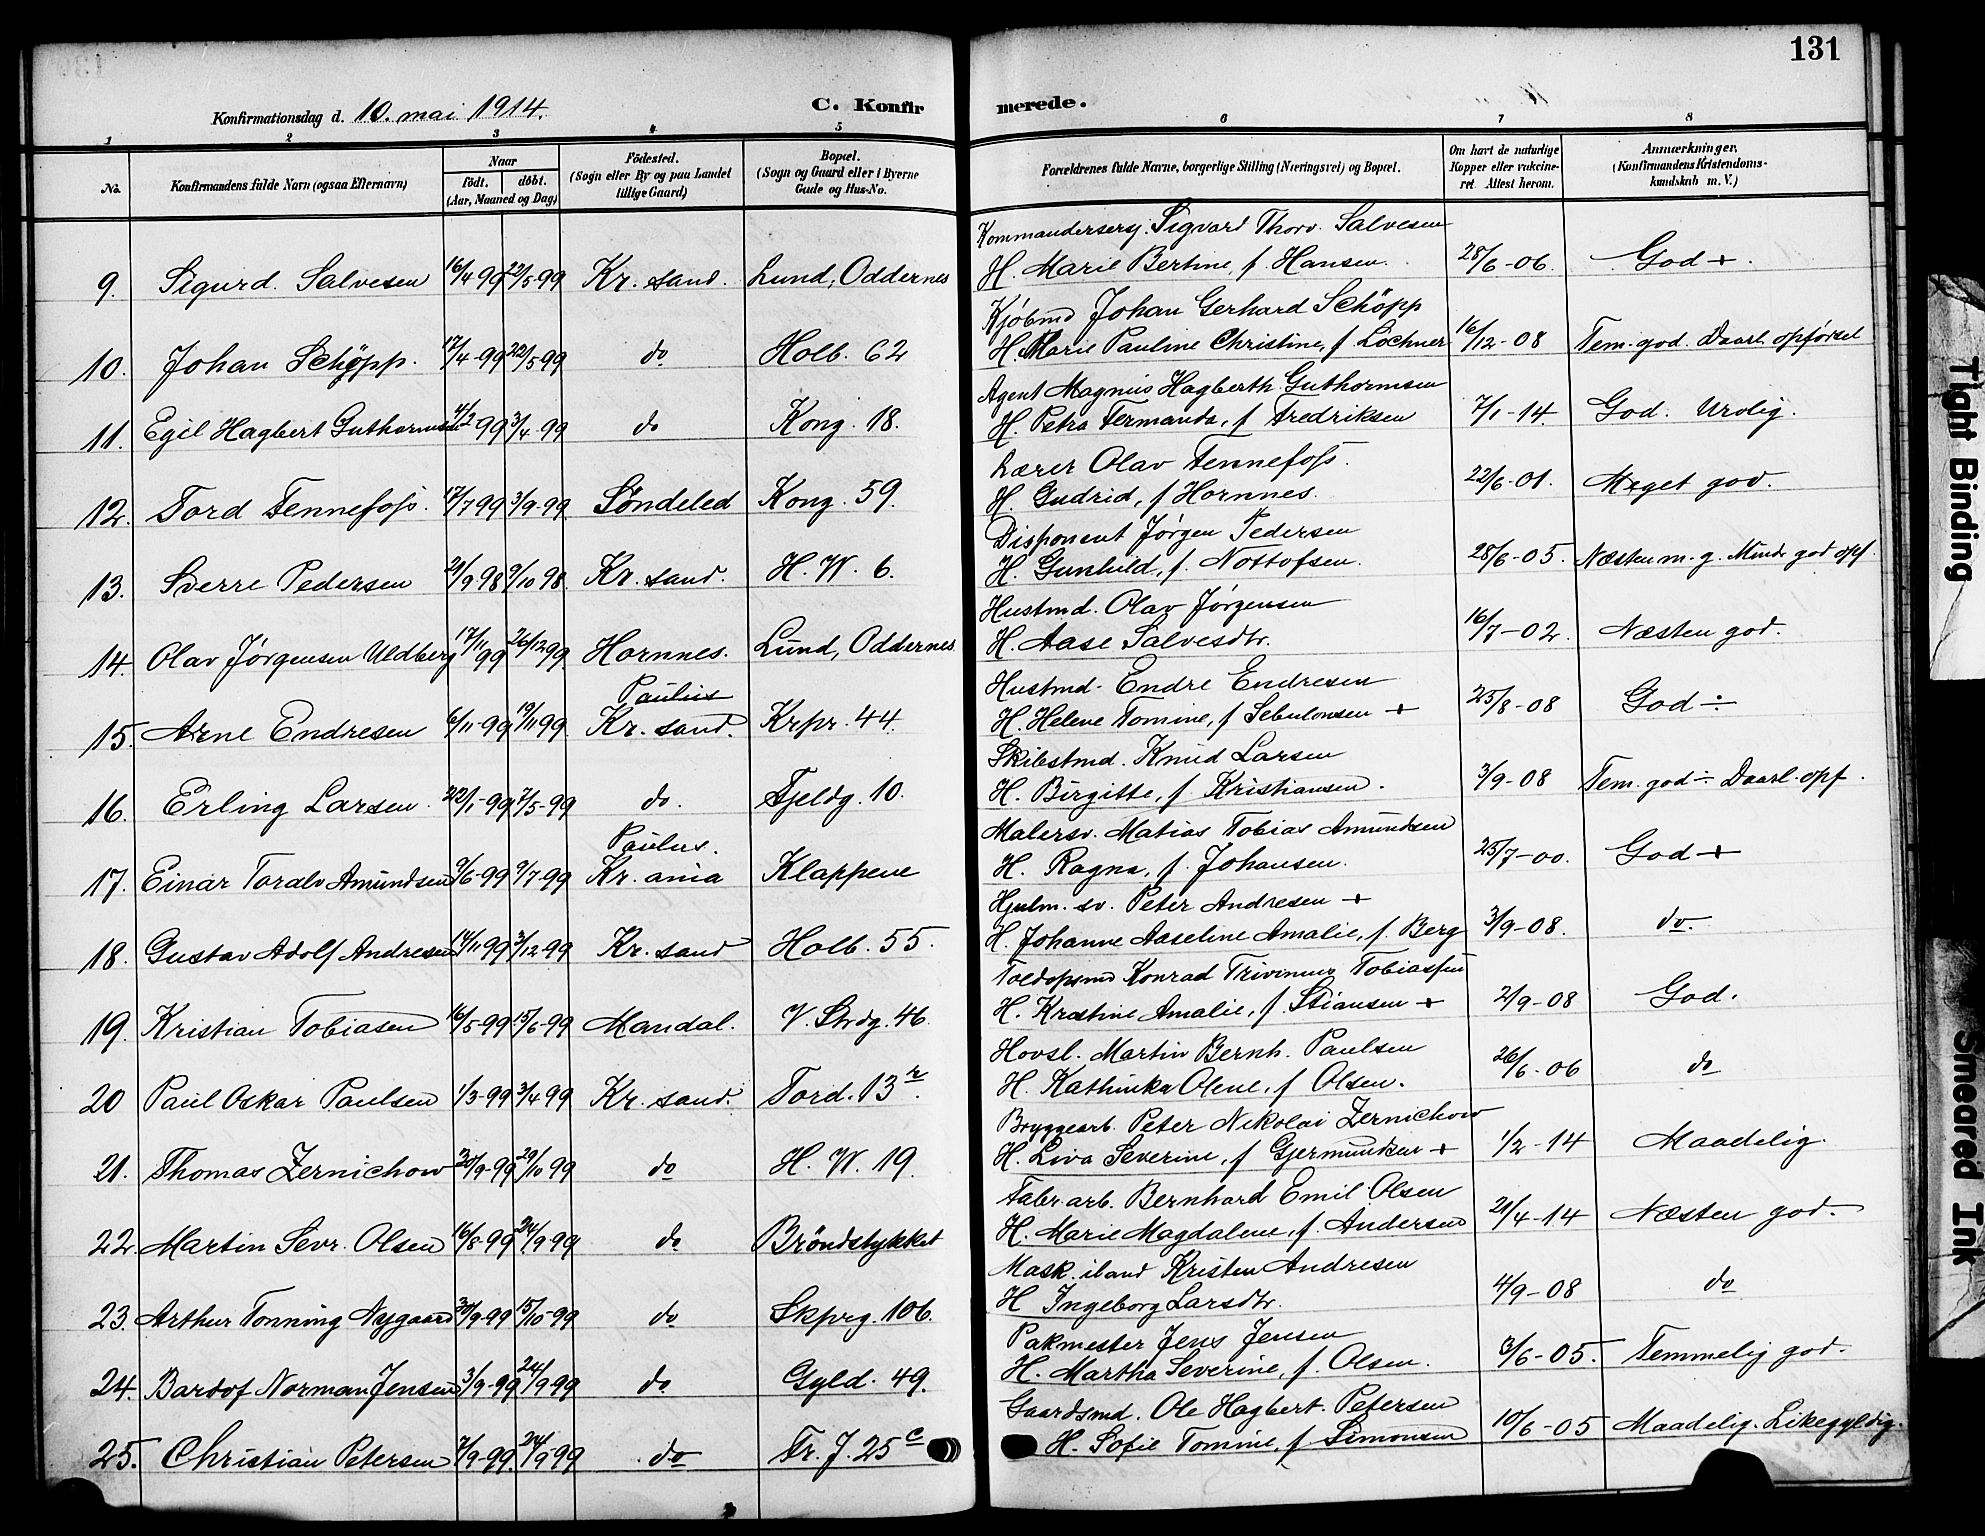 131
Konfirmationsdag d. 10. mai 1914.
C. Konfirmerede.
1 2 3 4 5 6 7 8
No. Konfirmandens fulde Navn (ogsaa Efternavn) Naar født. døbt. (Aar, Maaned og Dag) Fødested. (Sogn eller By og paa Landet tillige Gaard) Bopæl. (Sogn og Gaard eller i Byerne Gade og Hus-No. Forældrenes fulde Navne, borgerlige Stilling (Næringsvei) og Bopæl. Om havt de naturlige Kopper eller vakcineret. Attest herom. Anmærkninger. (Konfirmandens Kristendomskundskab m. V.)
Kommandersersj. Sigvard Thorv. Salvesen
9. Sigurd Salvesen 16/4-99 22/5-99 Kr. sand. Lund, Oddernes H. Marie Bertine, f Hansen. 28/6-06 God +.
Kjøbmd Johan Gerhard Schöpp
10. Johan Schöpp. 17/4-99 22/5-99 do Holb. 62 H. Marie Pauline Christine, f Lochner 16/12-08 Tem. god. Daarl. opførsel
Agent Magnus Hagberth Guthormsen
11. Egil Hagbert Guthormsen 4/2-99 3/4-99 do Kong. 18. H. Petra Fermanda, f Fredriksen 7/1-14. God. Urolig.
Lærer Olav Tennefoss.
12. Tord Tennefoss. 17/7 99 3/9-99 Søndeled Kong. 59. H. Gudrid, f Hornnes. 22/6-01. Meget god.
Disponent Jørgen Pedersen
13. Sverre Pedersen 21/9-98 9/10 98. Kr. sand. H. W. 6. H. Gunhild, f. Nottofsen. 28/6-05. Næsten m. g. Mindr god opf.
Hustmd. Olav Jørgensen
14. Olav Jørgensen Uldberg 17/11 99 26/12 99 Hornnes. Lund, Oddernes H. Aase Salvesdtr. 16/7-02. Næsten god.
Paulus Hustmd. Endre Endresen
15. Arne Endresen 6/11-99 19/11 99 Kr. sand. Krpr. 44. H. Helene Tomine, f Sebulonsen + 25/8-08 God ÷
Skibstmd. Knud Larsen
16. Erling Larsen. 22/1-99 7/5-99 do. Fjeldg. 10. H. Birgitte, f. Kristiansen. 3/9-08 Tem. god ÷ Daarl. opf.
Paulus. Malersv. Matias Tobias Amundsen
17. Einar Toralv Amundsen 9/6-99 9/7-99 Kr. ania Klappene H. Ragna, f. Johansen. 25/7-00. God +
Hjulm. sv. Peter Andresen +
18. Gustav Adolf Andresen 14/11 99 3/12-99 Kr. sand Holb. 55. H. Johanne Aaseline Amalie, f. Berg 3/9-08. do.
Toldopsmd Konrad Trivinius Tobiassen
19. Kristian Tobiasen 16/5-99 15/6-99 Mandal. V. Strdg. 46. H. Krestine Amalie, f. Stiansen + 2/9-08 God.
Hovsl. Martin Bernh. Paulsen
20 Paul Oskar Paulsen 1/3-99 3/4 99 Kr. sand. Tord. 13 H. Kathinka Olene, f Olsen. 26/6-06 do
Bryggearb. Peter Nikolai Zernichow
21. Thomas Zernichow 20/9-99 29/10 99 do H. W. 19. H. Liva Severine, f Gjermundsen + 1/2-14 Maadelig.
Fabr. arb. Bernhard Emil Olsen
22. Martin Sevr. Olsen 16/8-99 24/9-99 do Brøndstykket H. Marie Magdalene, f. Andersen 21/4-14 Næsten god.
Mask. Kristen Andresen
23. Arthur Tonning Nygaard 30/9-99 15/10-99 do Skpvg. 106. H Ingeborg Larsdtr. 4/9-08 do
Pakmester Jens Jensen
24. Bardof Norman Jensen 3/9-99 24/9-99 do Gyld. 49. H. Martha Severine, f. Olsen. 3/6-05. Temmelig god.
Gaardsmd. Ole Hagbert Petersen
25. Christian Petersen 7/9-99. 24/9 99 do Tr. J. 25 c H. Sofie Tomine, f Simonsen 10/6-05 Maadelig. Likegyldig.
Tight Binding
Smeared Ink